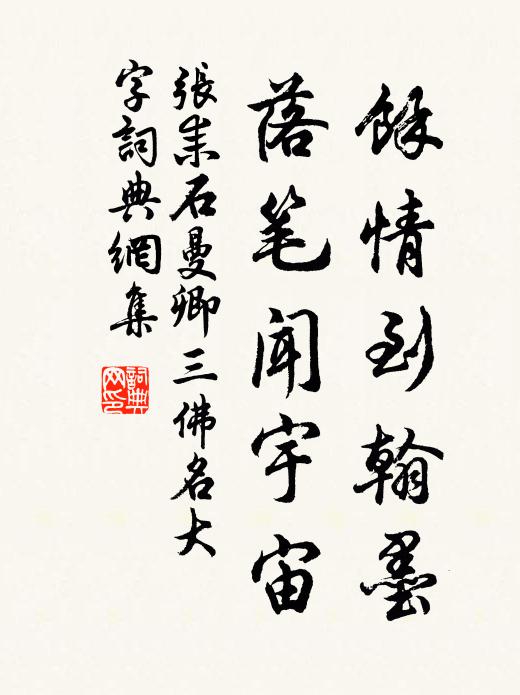 餘情到翰墨
落笔聞宇宙
張耒石曼卿三佛名大
字詞典網集
詞典
网印